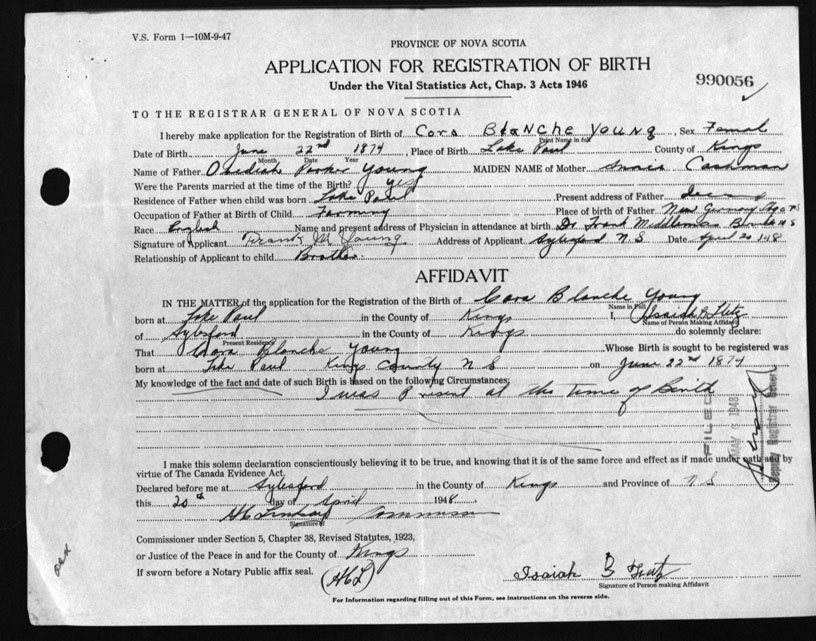 V.S. Form 1—10M-9-47
PROVINCE OF NOVA SCOTIA
APPLICATION FOR REGISTRATION OF BIRTH
990056
Under the Vital Statistics Act, Chap. 3 Acts 1946
TO THE REGISTRAR GENERAL OF NOVA SCOTIA
I hereby make application for the Registration of Birth of Cora Blanche Young, Sex Femal
Print Name in full
Date of Birth June 22nd 1874, Place of Birth Lake Paul County of Kings
Month Date Year
Name of Father Obediah Parker Young MAIDEN NAME of Mother Cashman
Were the Parents married at the time of the Birth? yes
Residence of Father when child was born Lake Paul Present address of Father
Occupation of Father at Birth of Child Farming Place of birth of Father New Germany NS
Race English Name and present address of Physician in attendance at birth Dr Frank Middlemas NS
Signature of Applicant Frank M Young Address of Applicant Aylesford N S Date April 20 48
Relationship of Applicant to child Brother
AFFIDAVIT
IN THE MATTER of the application for the Registration of the Birth of Cora Blanche Young
Name in Full
born at Lake Paul in the County of Kings I, Isaiah B
Name of Person Making Affidavit
of Aylesford in the County of Kings do solemnly declare:
Present Residence
That Cora Blanche Young Whose Birth is sought to be registered was
born at Lake Paul Kings County N S on June 22nd 1874
My knowledge of the fact and date of such Birth is based on the following Circumstances:
I was Present at the time of Birth
FILED
MAY 1948
Deputy Registrar General
I make this solemn declaration conscientiously believing it to be true, and knowing that it is of the same force and effect as if made under oath and by
virtue of The Canada Evidence Act.
Declared before me at Aylesford in the County of Kings and Province of N S
this 20th day of April 1948.
Signature
Commissioner under Section 5, Chapter 38, Revised Statutes, 1923,
or Justice of the Peace in and for the County of Kings
If sworn before a Notary Public affix seal. (HCL)
Isaiah B
Signature of Person making Affidavit
For Information regarding filling out of this Form, see instructions on the reverse side.